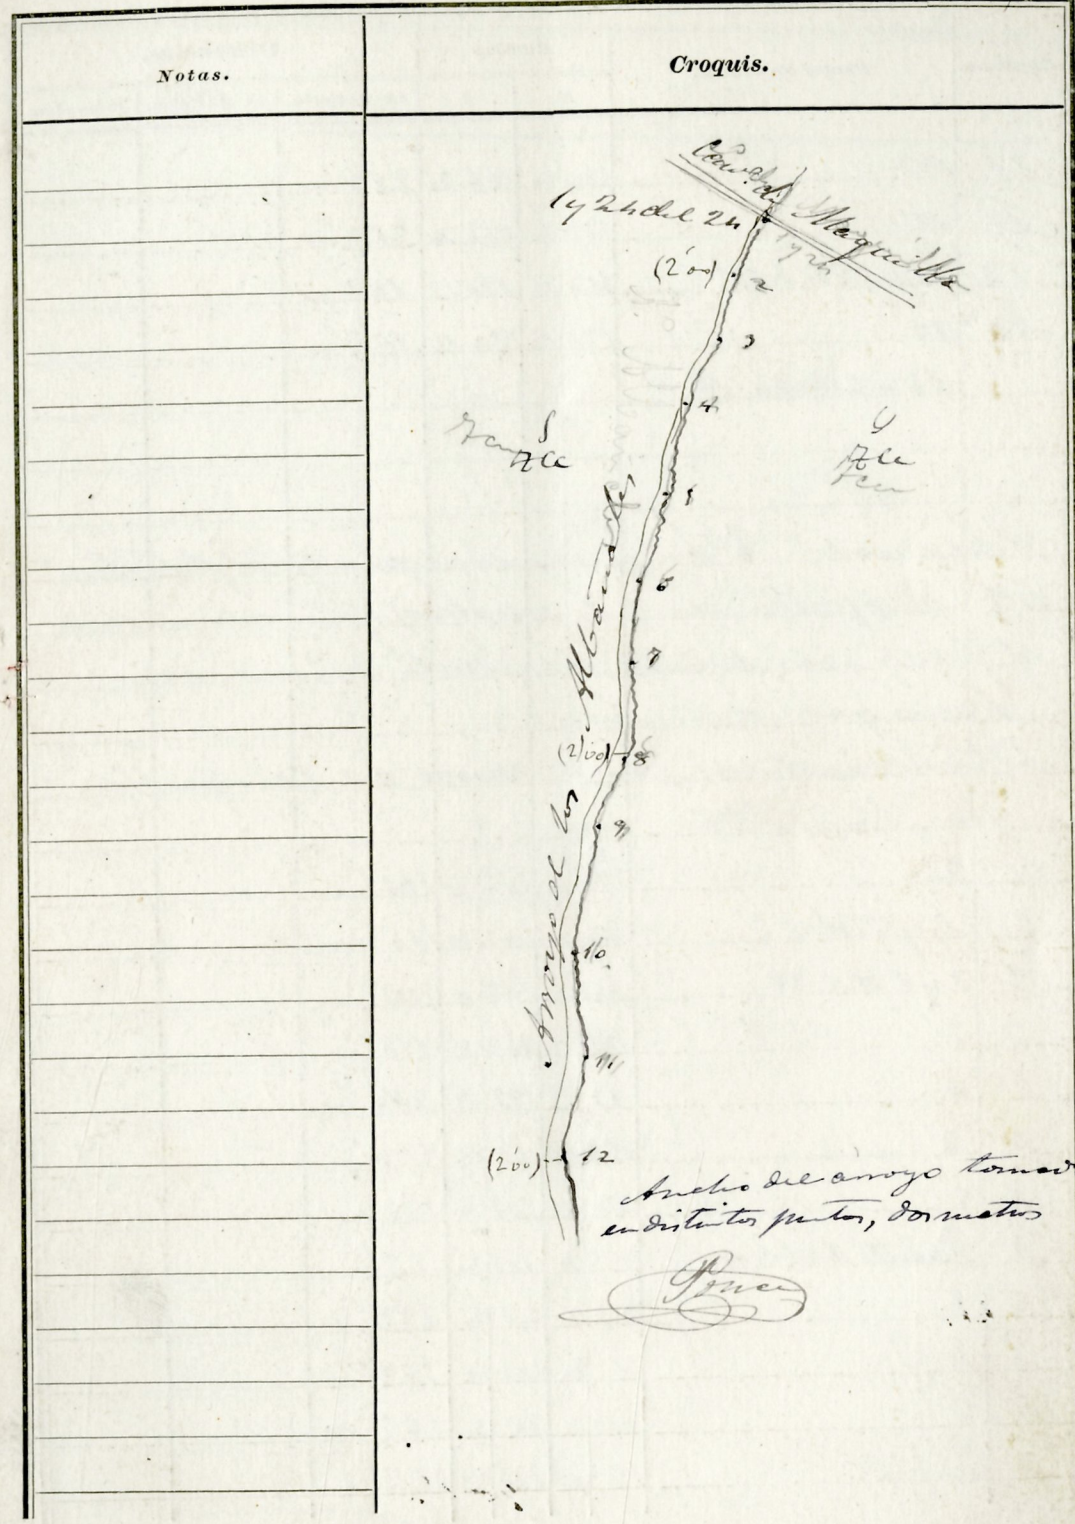 Notas.
Croquis.
Cam.º de Maquilla
1 y 24 del 24
1 y 24
(2'00)
2
3
4
5
6
7
(2'00) 8
9
10
11
(2'00) 12
Arroyo de los Albañales
Ancho del arroyo tomado
en distintos puntos, dos metros
Ponce